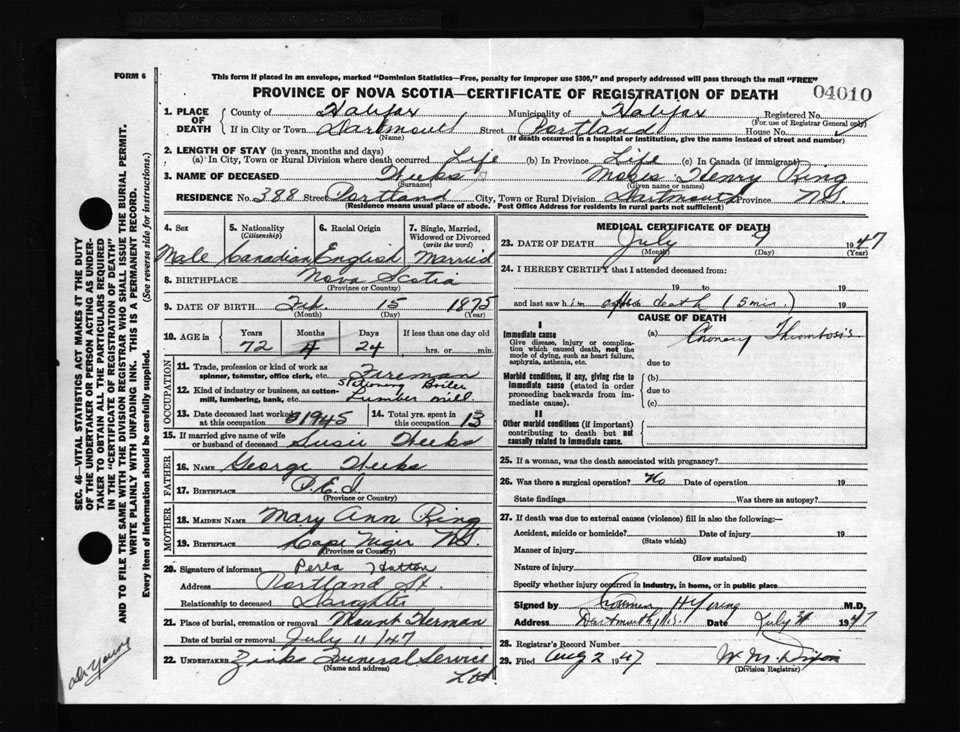 FORM 6
This form if placed in an envelope, marked "Dominion Statistics—Free, penalty for improper use $300," and properly addressed will pass through the mail "FREE"
PROVINCE OF NOVA SCOTIA—CERTIFICATE OF REGISTRATION OF DEATH
04010
1. PLACE OF DEATH
County of Halifax Municipality of Halifax Registered No.
(For use of Registrar General only)
If in City or Town Dartmouth Street Portland House No.
(Name) (If death occurred in a hospital or institution, give the name instead of street and number)
2. LENGTH OF STAY (in years, months and days)
(a) In City, Town or Rural Division where death occurred Life (b) In Province Life (c) In Canada (if immigrant)
3. NAME OF DECEASED Weeks Moses Henry Ring
(Surname) (Given name or names)
RESIDENCE No. 388 Street Portland City, Town or Rural Division Dartmouth Province N.S.
(Residence means usual place of abode. Post Office Address for residents in rural parts not sufficient)
4. Sex
5. Nationality (Citizenship)
6. Racial Origin
7. Single, Married, Widowed or Divorced (write the word)
Male Canadian English Married
8. BIRTHPLACE Nova Scotia
(Province or Country)
9. DATE OF BIRTH Feb. 15 1875
(Month) (Day) (Year)
10. AGE in Years Months Days If less than one day old
72 4 24 hrs. or min.
OCCUPATION
11. Trade, profession or kind of work as spinner, teamster, office clerk, etc. Fireman
Stationary Boiler
12. Kind of industry or business, as cotton-mill, lumbering, bank, etc. Lumber Mill
13. Date deceased last worked at this occupation 1945 14. Total yrs. spent in this occupation 13
15. If married give name of wife or husband of deceased Susie Weeks
FATHER
16. NAME George Weeks
17. BIRTHPLACE P.E.I.
(Province or Country)
MOTHER
18. MAIDEN NAME Mary Ann Ring
19. BIRTHPLACE Cape Negro N.S.
(Province or Country)
20. Signature of informant Perla Hatton
Address Portland St.
Relationship to deceased Daughter
21. Place of burial, cremation or removal Mount Herman
Date of burial or removal July 11/47
22. UNDERTAKER Zinks Funeral Service
(Name and address) Ltd
MEDICAL CERTIFICATE OF DEATH
23. DATE OF DEATH July 9 1947
(Month) (Day) (Year)
24. I HEREBY CERTIFY that I attended deceased from:
19 to 19
and last saw him after death (5 min.) 19
CAUSE OF DEATH
I
Immediate cause
Give disease, injury or complication which caused death, not the mode of dying, such as heart failure, asphyxia, asthenia, etc.
(a) Coronary Thrombosis
due to
Morbid conditions, if any, giving rise to immediate cause (stated in order proceeding backwards from immediate cause).
(b)
due to
(c)
II
Other morbid conditions (if important) contributing to death but not causally related to immediate cause.
25. If a woman, was the death associated with pregnancy?
26. Was there a surgical operation? No Date of operation 19
State findings Was there an autopsy?
27. If death was due to external causes (violence) fill in also the following:—
Accident, suicide or homicide? Date of injury 19
(State which)
Manner of injury
(How sustained)
Nature of injury
Specify whether injury occurred in industry, in home, or in public place
Signed by H Young M.D.
Address Dartmouth, N.S. Date July 1947
28. Registrar's Record Number
29. Filed Aug 2 1947
(Division Registrar)
SEC. 46—VITAL STATISTICS ACT MAKES IT THE DUTY OF THE UNDERTAKER OR PERSON ACTING AS UNDERTAKER TO OBTAIN ALL THE PARTICULARS REQUIRED IN THE "CERTIFICATE OF REGISTRATION OF DEATH" AND TO FILE THE SAME WITH THE DIVISION REGISTRAR WHO SHALL ISSUE THE BURIAL PERMIT.
WRITE PLAINLY WITH UNFADING INK. THIS IS A PERMANENT RECORD.
Every item of information should be carefully supplied. (See reverse side for instructions.)
Dr Young